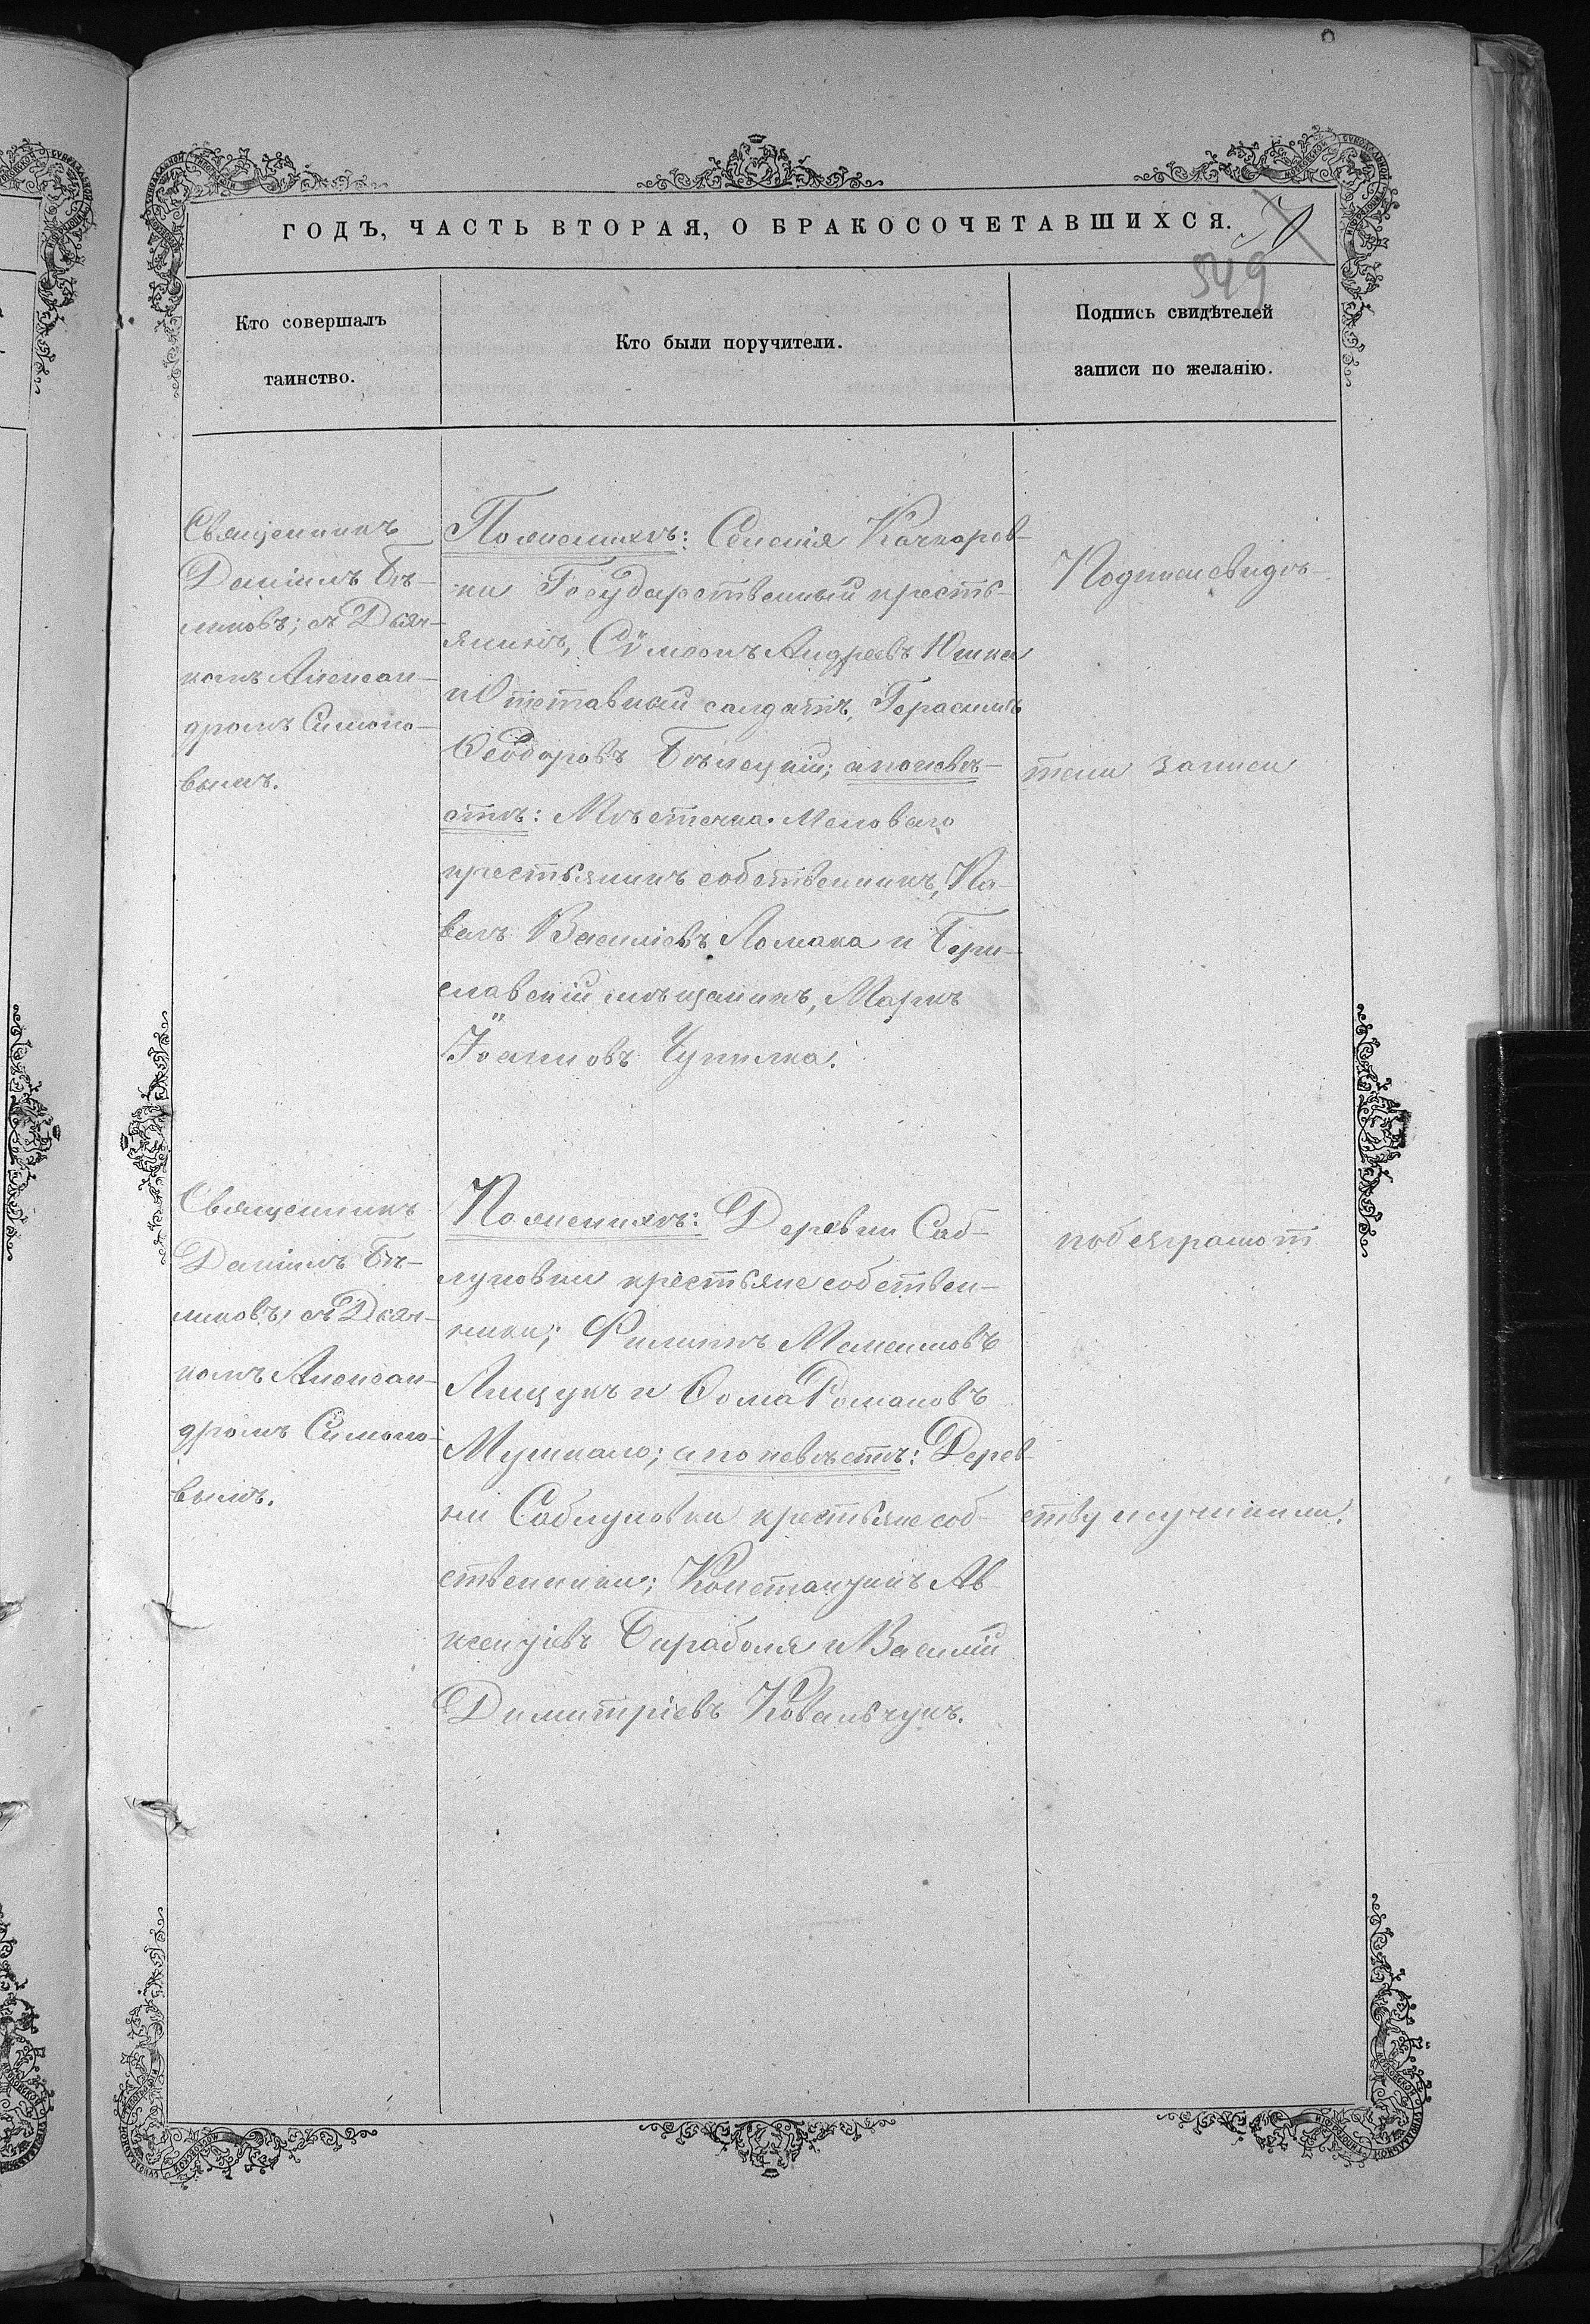 ГОДЪ, ЧАСТЬ ВТОРАЯ, О БРАКОСОЧЕТАВШИХСЯ.
549
Кто совершалъ
таинство.
Кто были поручители.
Подпись свидѣтелей
записи по желанію.
Священникъ
Даніилъ Бѣ-
ликовъ; съ Дьяч-
комъ Алексан-
дромъ Симоно-
вымъ.
По женихѣ: Селенія Качкаров-
ки Государственный кресть-
янинъ, Сѵмеонъ Андреевъ Юшка
и Отставный солдатъ, Герасимъ
Ѳеодоровъ Бѣлецкій; а по невѣ-
стѣ: Мѣстечка Меловаго
крестьянинъ собственникъ, Па-
велъ Василіевъ Ломака и Бери-
славскій мѣщанинъ, Маркъ
Іоанновъ Чупилка.
Подписи свидѣ-
тели записи
Священникъ
Даніилъ Бѣ-
ликовъ; съ Дьяч-
комъ Алексан-
дромъ Симоно-
вымъ.
По женихѣ: Деревни Саб-
луковки крестьяне собствен-
ники; Филиппъ Максимовъ
Ящукъ и Ѳома Романовъ
Мушкало; а по невѣстѣ: Дерев-
ни Саблуковки крестьяне соб-
ственники; Константинъ Ав-
ксентіевъ Бараболя и Василій
Димитріевъ Ковальчукъ.
по безграмот
ству неучинили.